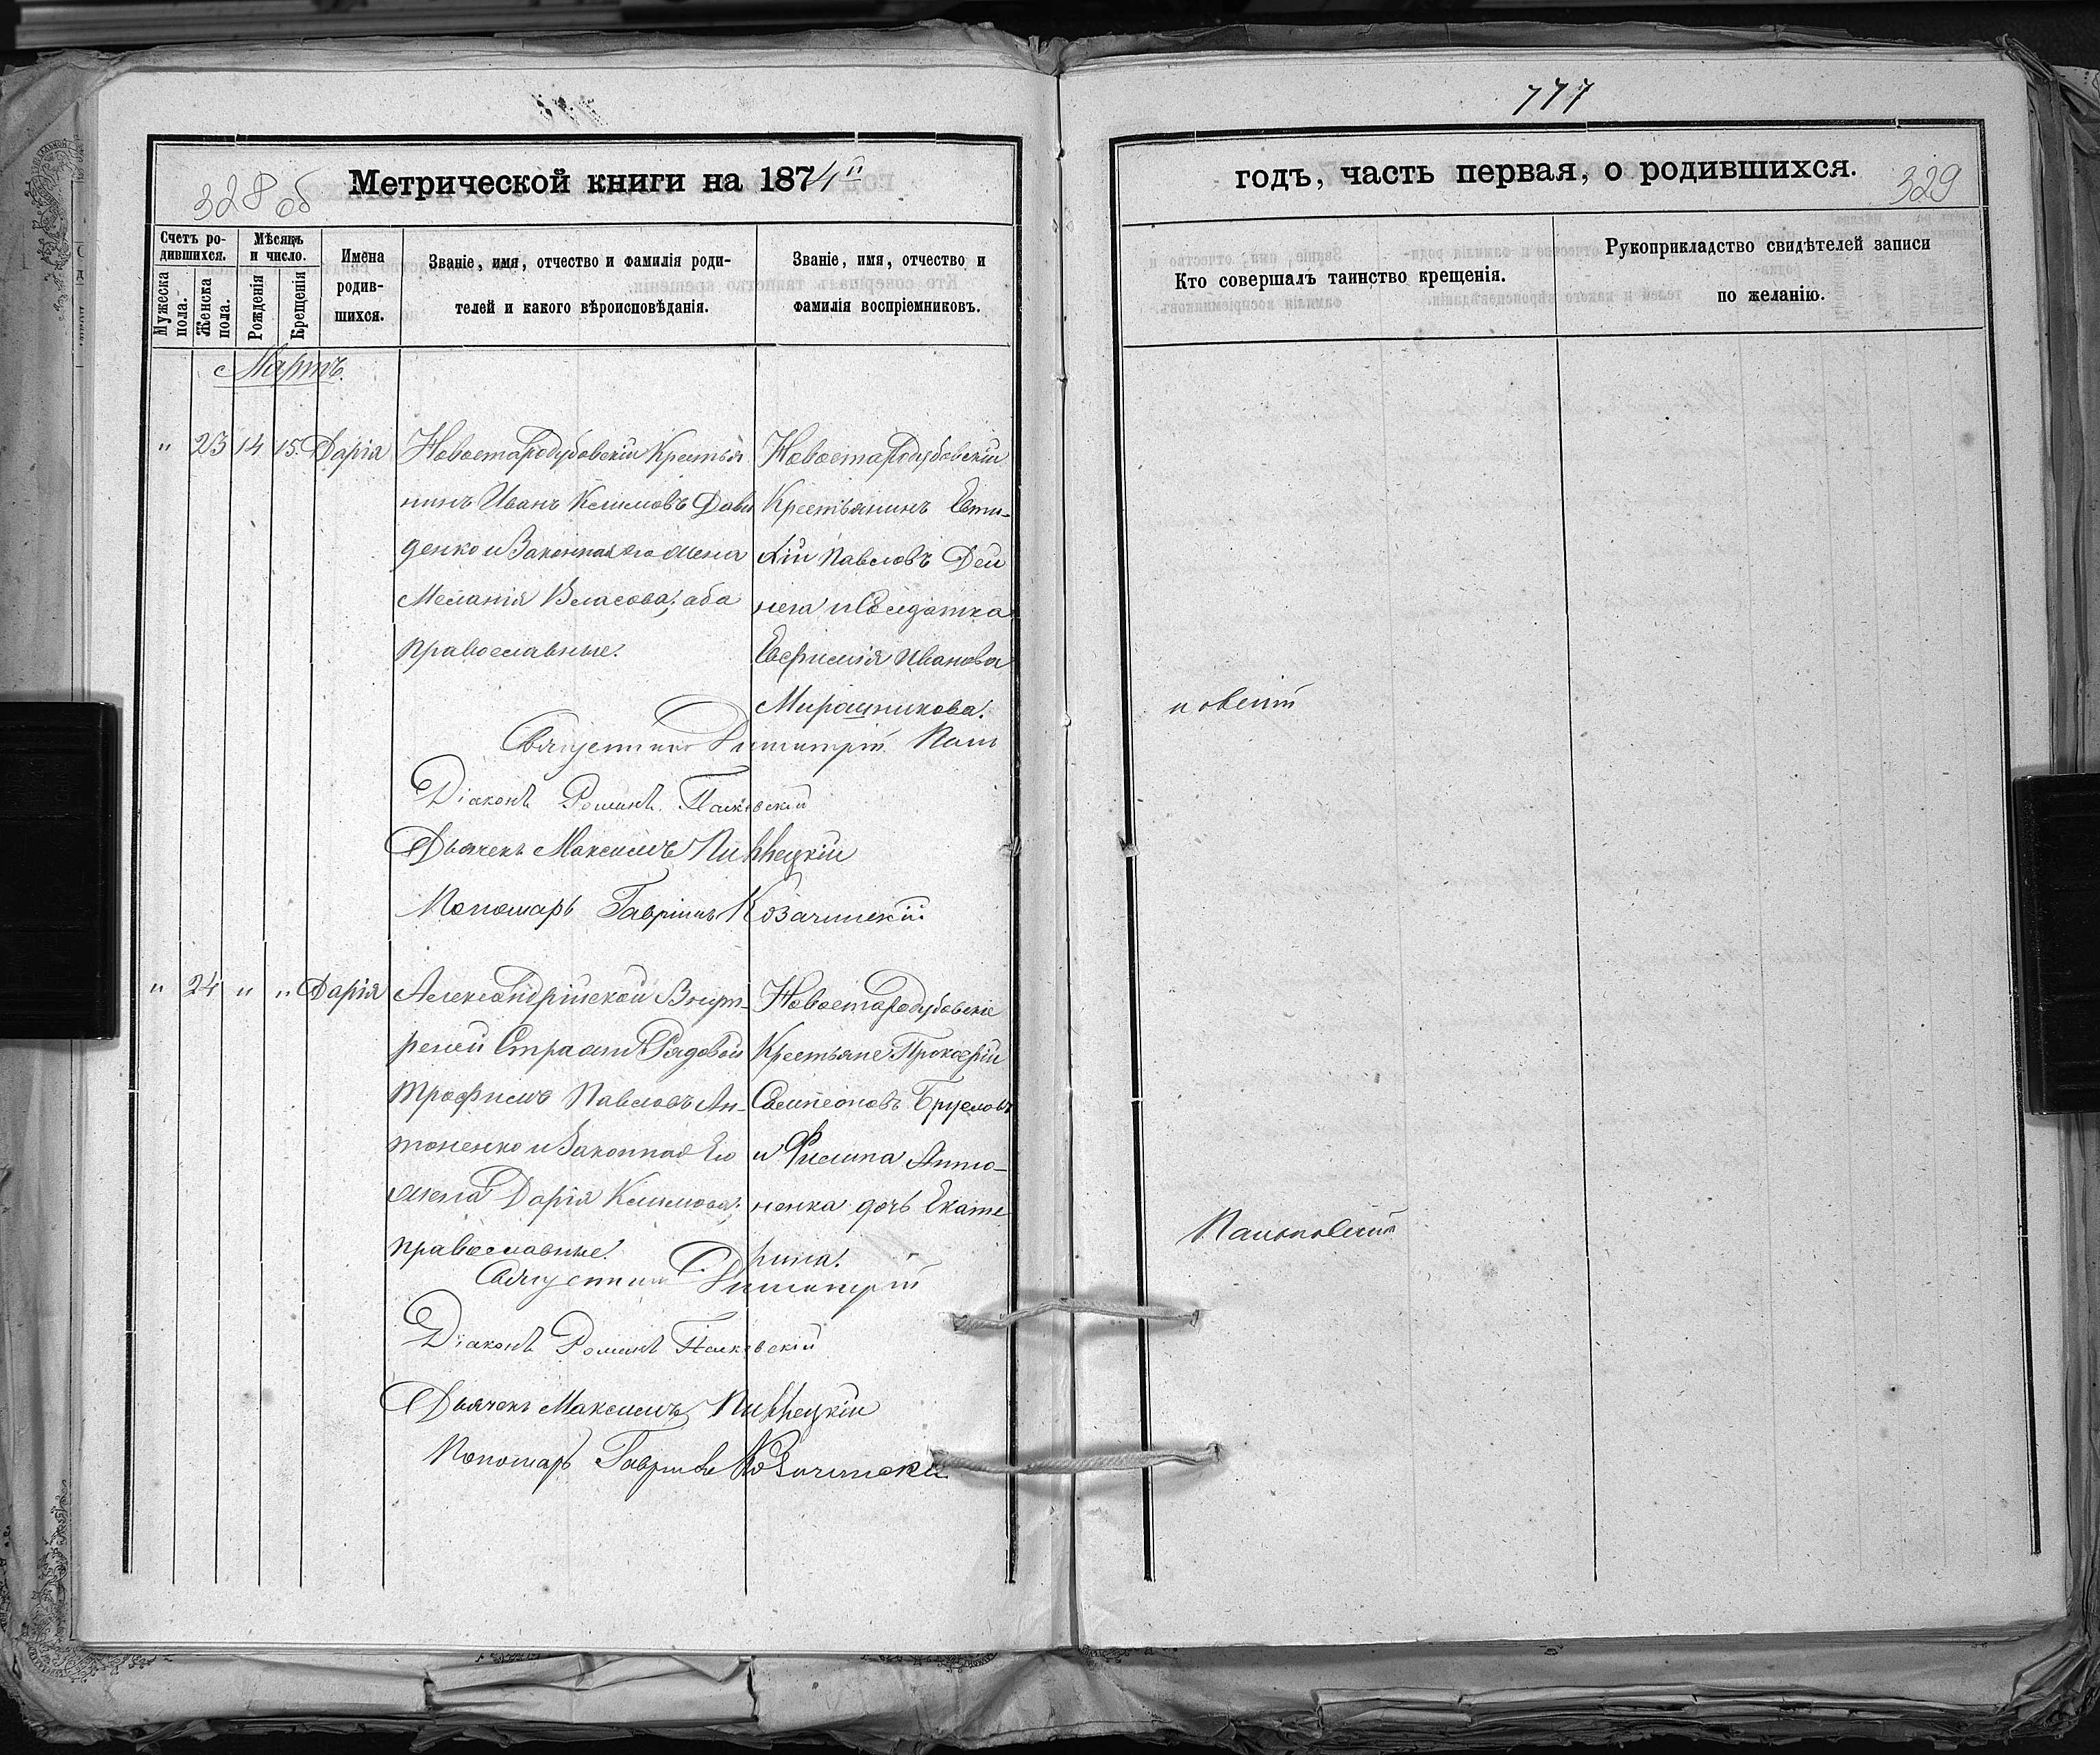 777
Метрической книги на 1874й
328 об
годъ, часть первая, о родившихся.
329
Счетъ родившихся.
Мужеска пола.
Женска пола.
Мѣсяцъ и число.
Рожденія
Крещенія
Имена родившихся.
Званіе, имя, отчество и фамилія родителей и какого вѣроисповѣданія.
Званіе, имя, отчество и фамилія воспріемниковъ.
Кто совершалъ таинство крещенія.
Рукоприкладство свидѣтелей записи по желанію.
Мартъ.
" 23 14 15. Дарія
Новостародубовскій Крестья
нинъ Иванъ Климовъ Дави
денко и Законная его жена
Меланія Власова, оба
православные.
Новостародубовскій
Крестьянинъ Евти-
хій Павловъ Дей
нега и Солдатка
Евфимія Иванова
Мирошникова.
Священникъ Димитрій Пальчовскій
Діаконъ Романъ
Дьячекъ Максимъ
Пономарь Гавріилъ Козачинскій
" 24 " " Дарія
Александрійской Внут-
реней Стражи Рядовой
Трофимъ Павловъ Ан-
тоненко и Законная Его
жена Дарія Климова,
православные.
Новостародубовскіе
Крестьяне Прокофій
Симеоновъ
и Филипа Анто-
ненка дочь Екате
рина.
Священникъ Димитрій
Діаконъ Романъ
Дьячекъ Максимъ
Пономарь Гавріилъ Козачинскій